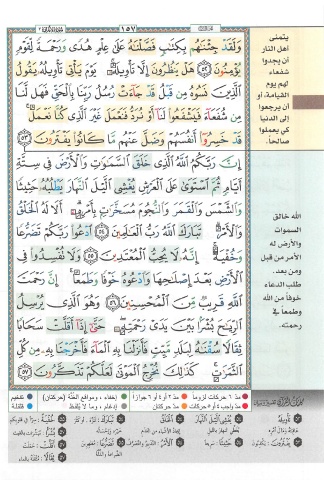 ١٥٧
وَلَقَدْ جِئْنَٰهُم بِكِتَٰبٍ فَصَّلْنَٰهُ عَلَىٰ عِلْمٍ هُدًى وَرَحْمَةً لِّقَوْمٍ
يُؤْمِنُونَ ٥٢ هَلْ يَنظُرُونَ إِلَّا تَأْوِيلَهُۥ ۚ يَوْمَ يَأْتِى تَأْوِيلُهُۥ يَقُولُ
ٱلَّذِينَ نَسُوهُ مِن قَبْلُ قَدْ جَآءَتْ رُسُلُ رَبِّنَا بِٱلْحَقِّ فَهَل لَّنَا
مِن شُفَعَآءَ فَيَشْفَعُوا۟ لَنَآ أَوْ نُرَدُّ فَنَعْمَلَ غَيْرَ ٱلَّذِى كُنَّا نَعْمَلُ ۚ
قَدْ خَسِرُوٓا۟ أَنفُسَهُمْ وَضَلَّ عَنْهُم مَّا كَانُوا۟ يَفْتَرُونَ ٥٣
إِنَّ رَبَّكُمُ ٱللَّهُ ٱلَّذِى خَلَقَ ٱلسَّمَٰوَٰتِ وَٱلْأَرْضَ فِى سِتَّةِ
أَيَّامٍ ثُمَّ ٱسْتَوَىٰ عَلَى ٱلْعَرْشِ يُغْشِى ٱلَّيْلَ ٱلنَّهَارَ يَطْلُبُهُۥ حَثِيثًا
وَٱلشَّمْسَ وَٱلْقَمَرَ وَٱلنُّجُومَ مُسَخَّرَٰتٍۭ بِأَمْرِهِۦٓ ۗ أَلَا لَهُ ٱلْخَلْقُ
وَٱلْأَمْرُ ۗ تَبَارَكَ ٱللَّهُ رَبُّ ٱلْعَٰلَمِينَ ٥٤ ٱدْعُوا۟ رَبَّكُمْ تَضَرُّعًا
وَخُفْيَةً ۚ إِنَّهُۥ لَا يُحِبُّ ٱلْمُعْتَدِينَ ٥٥ وَلَا تُفْسِدُوا۟ فِى
ٱلْأَرْضِ بَعْدَ إِصْلَٰحِهَا وَٱدْعُوهُ خَوْفًا وَطَمَعًا ۚ إِنَّ رَحْمَتَ
ٱللَّهِ قَرِيبٌ مِّنَ ٱلْمُحْسِنِينَ ٥٦ وَهُوَ ٱلَّذِى يُرْسِلُ
ٱلرِّيَٰحَ بُشْرًۢا بَيْنَ يَدَىْ رَحْمَتِهِۦ ۖ حَتَّىٰٓ إِذَآ أَقَلَّتْ سَحَابًا
ثِقَالًا سُقْنَٰهُ لِبَلَدٍ مَّيِّتٍ فَأَنزَلْنَا بِهِ ٱلْمَآءَ فَأَخْرَجْنَا بِهِۦ مِن كُلِّ
ٱلثَّمَرَٰتِ ۚ كَذَٰلِكَ نُخْرِجُ ٱلْمَوْتَىٰ لَعَلَّكُمْ تَذَكَّرُونَ ٥٧
يتمنى
أهل النار
أن يجدوا
شفعاء
لهم يوم
القيامة، أو
أن يرجعوا
إلى الدنيا
كي يعملوا
صالحاً.
الله خالق
السموات
والأرض له
الأمر من قبل
ومن بعد.
طلب الدعاء
خوفاً من الله
وطمعاً في
رحمته.